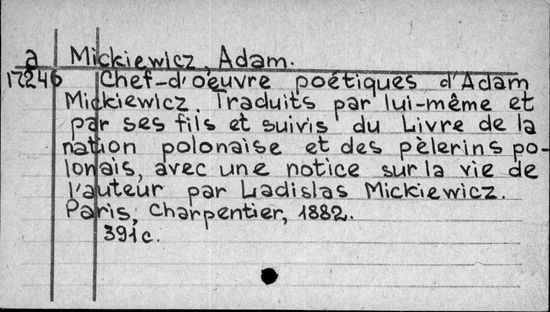 a Mickiewicz, Adam.
17246 Chef-d'oeuvre poétiques d'Adam
Mickiewicz. Traduits par lui-même et
par ses fils et suivis du Livre de la
nation polonaise et des pèlerins po-
lonais, avec une notice sur la vie de
l'auteur par Ladislas Mickiewicz.
Paris, Charpentier, 1882.
391 c.